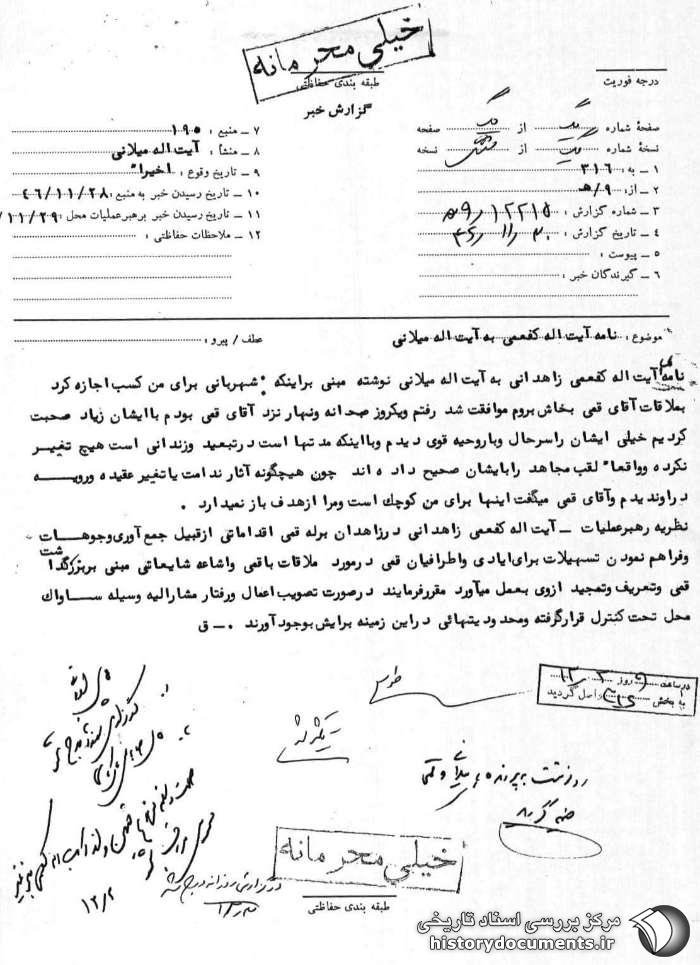 خیلی محرمانه
طبقه بندی حفاظتی
گزارش خبر
درجه فوریت
صفحهٔ شماره یک از یک صفحه
نسخهٔ شماره یک از نسخه
۱ ـ به : ۳۱۶
۲ ـ از: ۹/هـ
۳ ـ شماره گزارش : ۹/۱۲۲۱۵هـ
۴ ـ تاریخ گزارش : ۴۶/۱۱/۳۰
۵ ـ پیوست :
۶ ـ گیرندگان خبر :
۷ ـ منبع : ۱۹۵
۸ ـ منشأ : آیت اله میلانی
۹ ـ تاریخ وقوع : اخیرا"
۱۰ ـ تاریخ رسیدن خبر به منبع : ۴۶/۱۱/۲۸
۱۱ ـ تاریخ رسیدن خبر برهبرعملیات محل : ۱۱/۲۹/
۱۲ ـ ملاحظات حفاظتی :
موضوع : نامه آیت اله کفعمی به آیت اله میلانی
عطف / پیرو :
نامه آیت اله کفعمی زاهدانی به آیت اله میلانی نوشته مبنی براینکه : شهربانی برای من کسب اجازه کرد
بملاقات آقای قمی بخاش بروم موافقت شد رفتم ویکروز صبحانه ونهار نزد آقای قمی بودم باایشان زیاد صحبت
کردیم خیلی ایشان راسرحال وباروحیه قوی دیدم وبااینکه مدتها است درتبعید وزندانی است هیچ تغییر
نکرده وواقعا" لقب مجاهد رابایشان صحیح داده اند چون هیچگونه آثار ندامت یاتغییر عقیده ورویه
دراوندیدم وآقای قمی میگفت اینها برای من کوچک است ومرا ازهدف باز نمیدارد .
نظریه رهبرعملیات ـ آیت اله کفعمی زاهدانی درزاهدان برله قمی اقداماتی ازقبیل جمع آوری وجوهات
وفراهم نمودن تسهیلات برای ایادی واطرافیان قمی درمورد ملاقات باقمی واشاعه شایعاتی مبنی بربزرگداشت
قمی وتعریف وتمجید ازوی بعمل میآورد مقررفرمایند درصورت تصویب اعمال ورفتار مشارالیه وسیله ساواک
محل تحت کنترل قرارگرفته ومحدودیتهائی دراین زمینه برایش بوجودآورند . ـ ق
در ساعت ۹ روز
به بخش واصل گردید
رونوشت به پرونده میلانی و قمی
ضمیمه گردد
در گزارش روزانه درج شد
۱۲/۲
خیلی محرمانه
طبقه بندی حفاظتی
مرکز بررسی اسناد تاریخی
historydocuments.ir